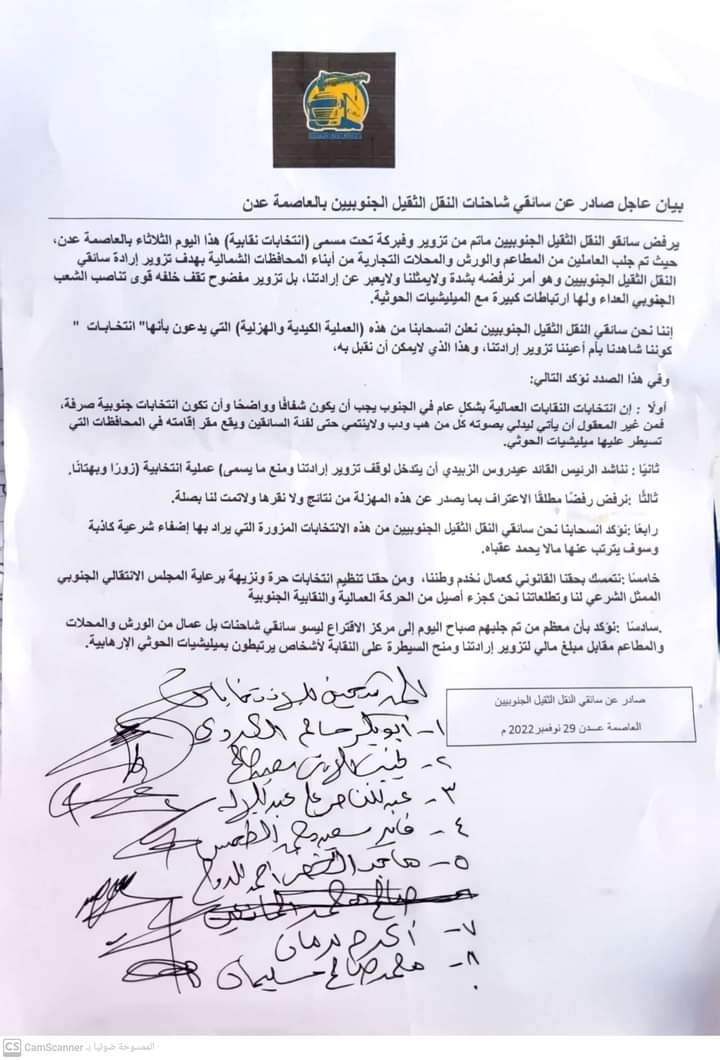 بيان عاجل صادر عن سائقي شاحنات النقل الثقيل الجنوبيين بالعاصمة عدن
يرفض سائقو النقل الثقيل الجنوبيين ماتم من تزوير وفبركة تحت مسمى (انتخابات نقابية) هذا اليوم الثلاثاء بالعاصمة عدن،
حيث تم جلب العاملين من المطاعم والورش والمحلات التجارية من أبناء المحافظات الشمالية بهدف تزوير إرادة سائقي
النقل الثقيل الجنوبيين وهو أمر نرفضه بشدة ولايمثلنا ولايعبر عن إرادتنا، بل تزوير مفضوح تقف خلفه قوى تناصب الشعب
الجنوبي العداء ولها ارتباطات كبيرة مع الميليشيات الحوثية.
إننا نحن سائقي النقل الثقيل الجنوبيين نعلن انسحابنا من هذه (العملية الكيدية والهزلية) التي يدعون بأنها" انتخابات "
كوننا شاهدنا بأم أعيننا تزوير إرادتنا، وهذا الذي لايمكن أن نقبل به،
وفي هذا الصدد نؤكد التالي:
أولًا : إن انتخابات النقابات العمالية بشكلٍ عام في الجنوب يجب أن يكون شفافًا وواضحًا وأن تكون انتخابات جنوبية صرفة،
فمن غير المعقول أن يأتي ليدلي بصوته كل من هب ودب ولاينتمي حتى لفئة السائقين ويقع مقر إقامته في المحافظات التي
تسيطر عليها ميليشيات الحوثي.
ثانيًا : نناشد الرئيس القائد عيدروس الزبيدي أن يتدخل لوقف تزوير إرادتنا ومنع ما يسمى) عملية انتخابية (زورًا وبهتانًا.
ثالثًا :نرفض رفضًا مطلقًا الاعتراف بما يصدر عن هذه المهزلة من نتائج ولا نقرها ولاتمت لنا بصلة.
رابعًا :نؤكد انسحابنا نحن سائقي النقل الثقيل الجنوبيين من هذه الانتخابات المزورة التي يراد بها إضفاء شرعية كاذبة
وسوف يترتب عنها مالا يحمد عقباه.
خامسًا :نتمسك بحقنا القانوني كعمال نخدم وطننا، ومن حقنا تنظيم انتخابات حرة ونزيهة برعاية المجلس الانتقالي الجنوبي
الممثل الشرعي لنا وتطلعاتنا نحن كجزء أصيل من الحركة العمالية والنقابية الجنوبية
.سادسًا :نؤكد بأن معظم من تم جلبهم صباح اليوم إلى مركز الاقتراع ليسو سائقي شاحنات بل عمال من الورش والمحلات
والمطاعم مقابل مبلغ مالي لتزوير إرادتنا ومنح السيطرة على النقابة لأشخاص يرتبطون بميليشيات الحوثي الإرهابية.
صادر عن سائقي النقل الثقيل الجنوبيين
العاصمة عــدن 29 نوفمبر2022 م
١- ابوبكر صالح
٢-
٣-
٤- فايز سعيد محمد
٥- ماجد احمد
صالح محمد
٧- اكرم
٨- محمد صالح سليمان
CS CamScanner الممسوحة ضوئيا بـ